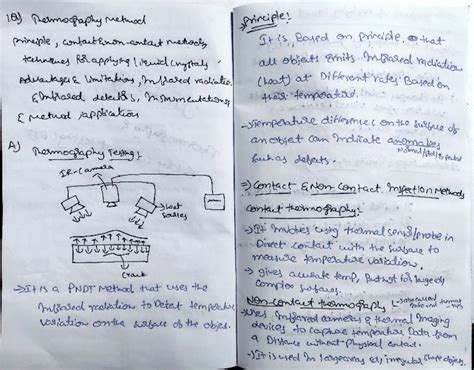 1Q) Thermography Method
Principle, contact & non-contact methods,
techniques for applying liquid crystals
Advantages & limitations, Infrared radiation
& Infrared detectors, Instrumentations
& Method applications
A) Thermography Testing:
IR-Camera
Heat
Sources
Crack
→ It is a NDT Method that uses the
Infrared radiation to Detect temperature
Variation on the surface of the object.
Principle:
It is Based on principle that
all objects Emits Infrared radiation
(heat) at Different rates Based on
their temperature.
→ Temperature differences on the surface of
an object can Indicate anomalies
such as defects.
⇒ Contact & Non Contact Inspection Methods
Contact thermography:
→ It Involves using thermal sensor/probe in
Direct contact with the surface to
measure temperature variation.
→ gives accurate temp, But not for large or
Complex surfaces.
Non-contact thermography
→ Uses Infrared cameras & thermal Imaging
devices to capture temperature Data from
a Distance without physical contact.
→ It is used in large areas or, irregular shape objects.